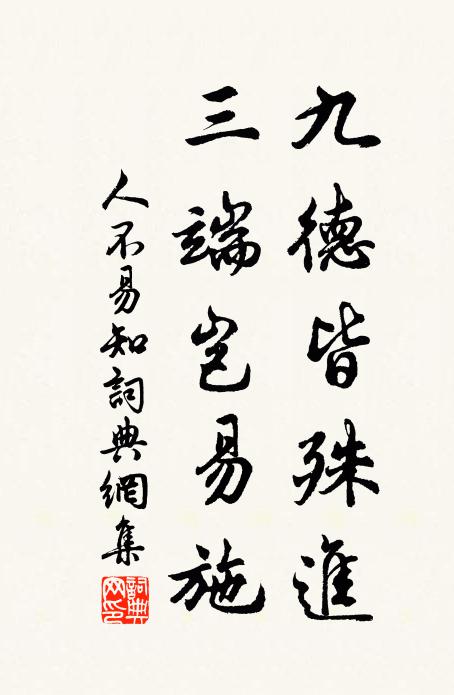 九德皆殊進
三端岂易施
人不易知詞典網集
詞典网印